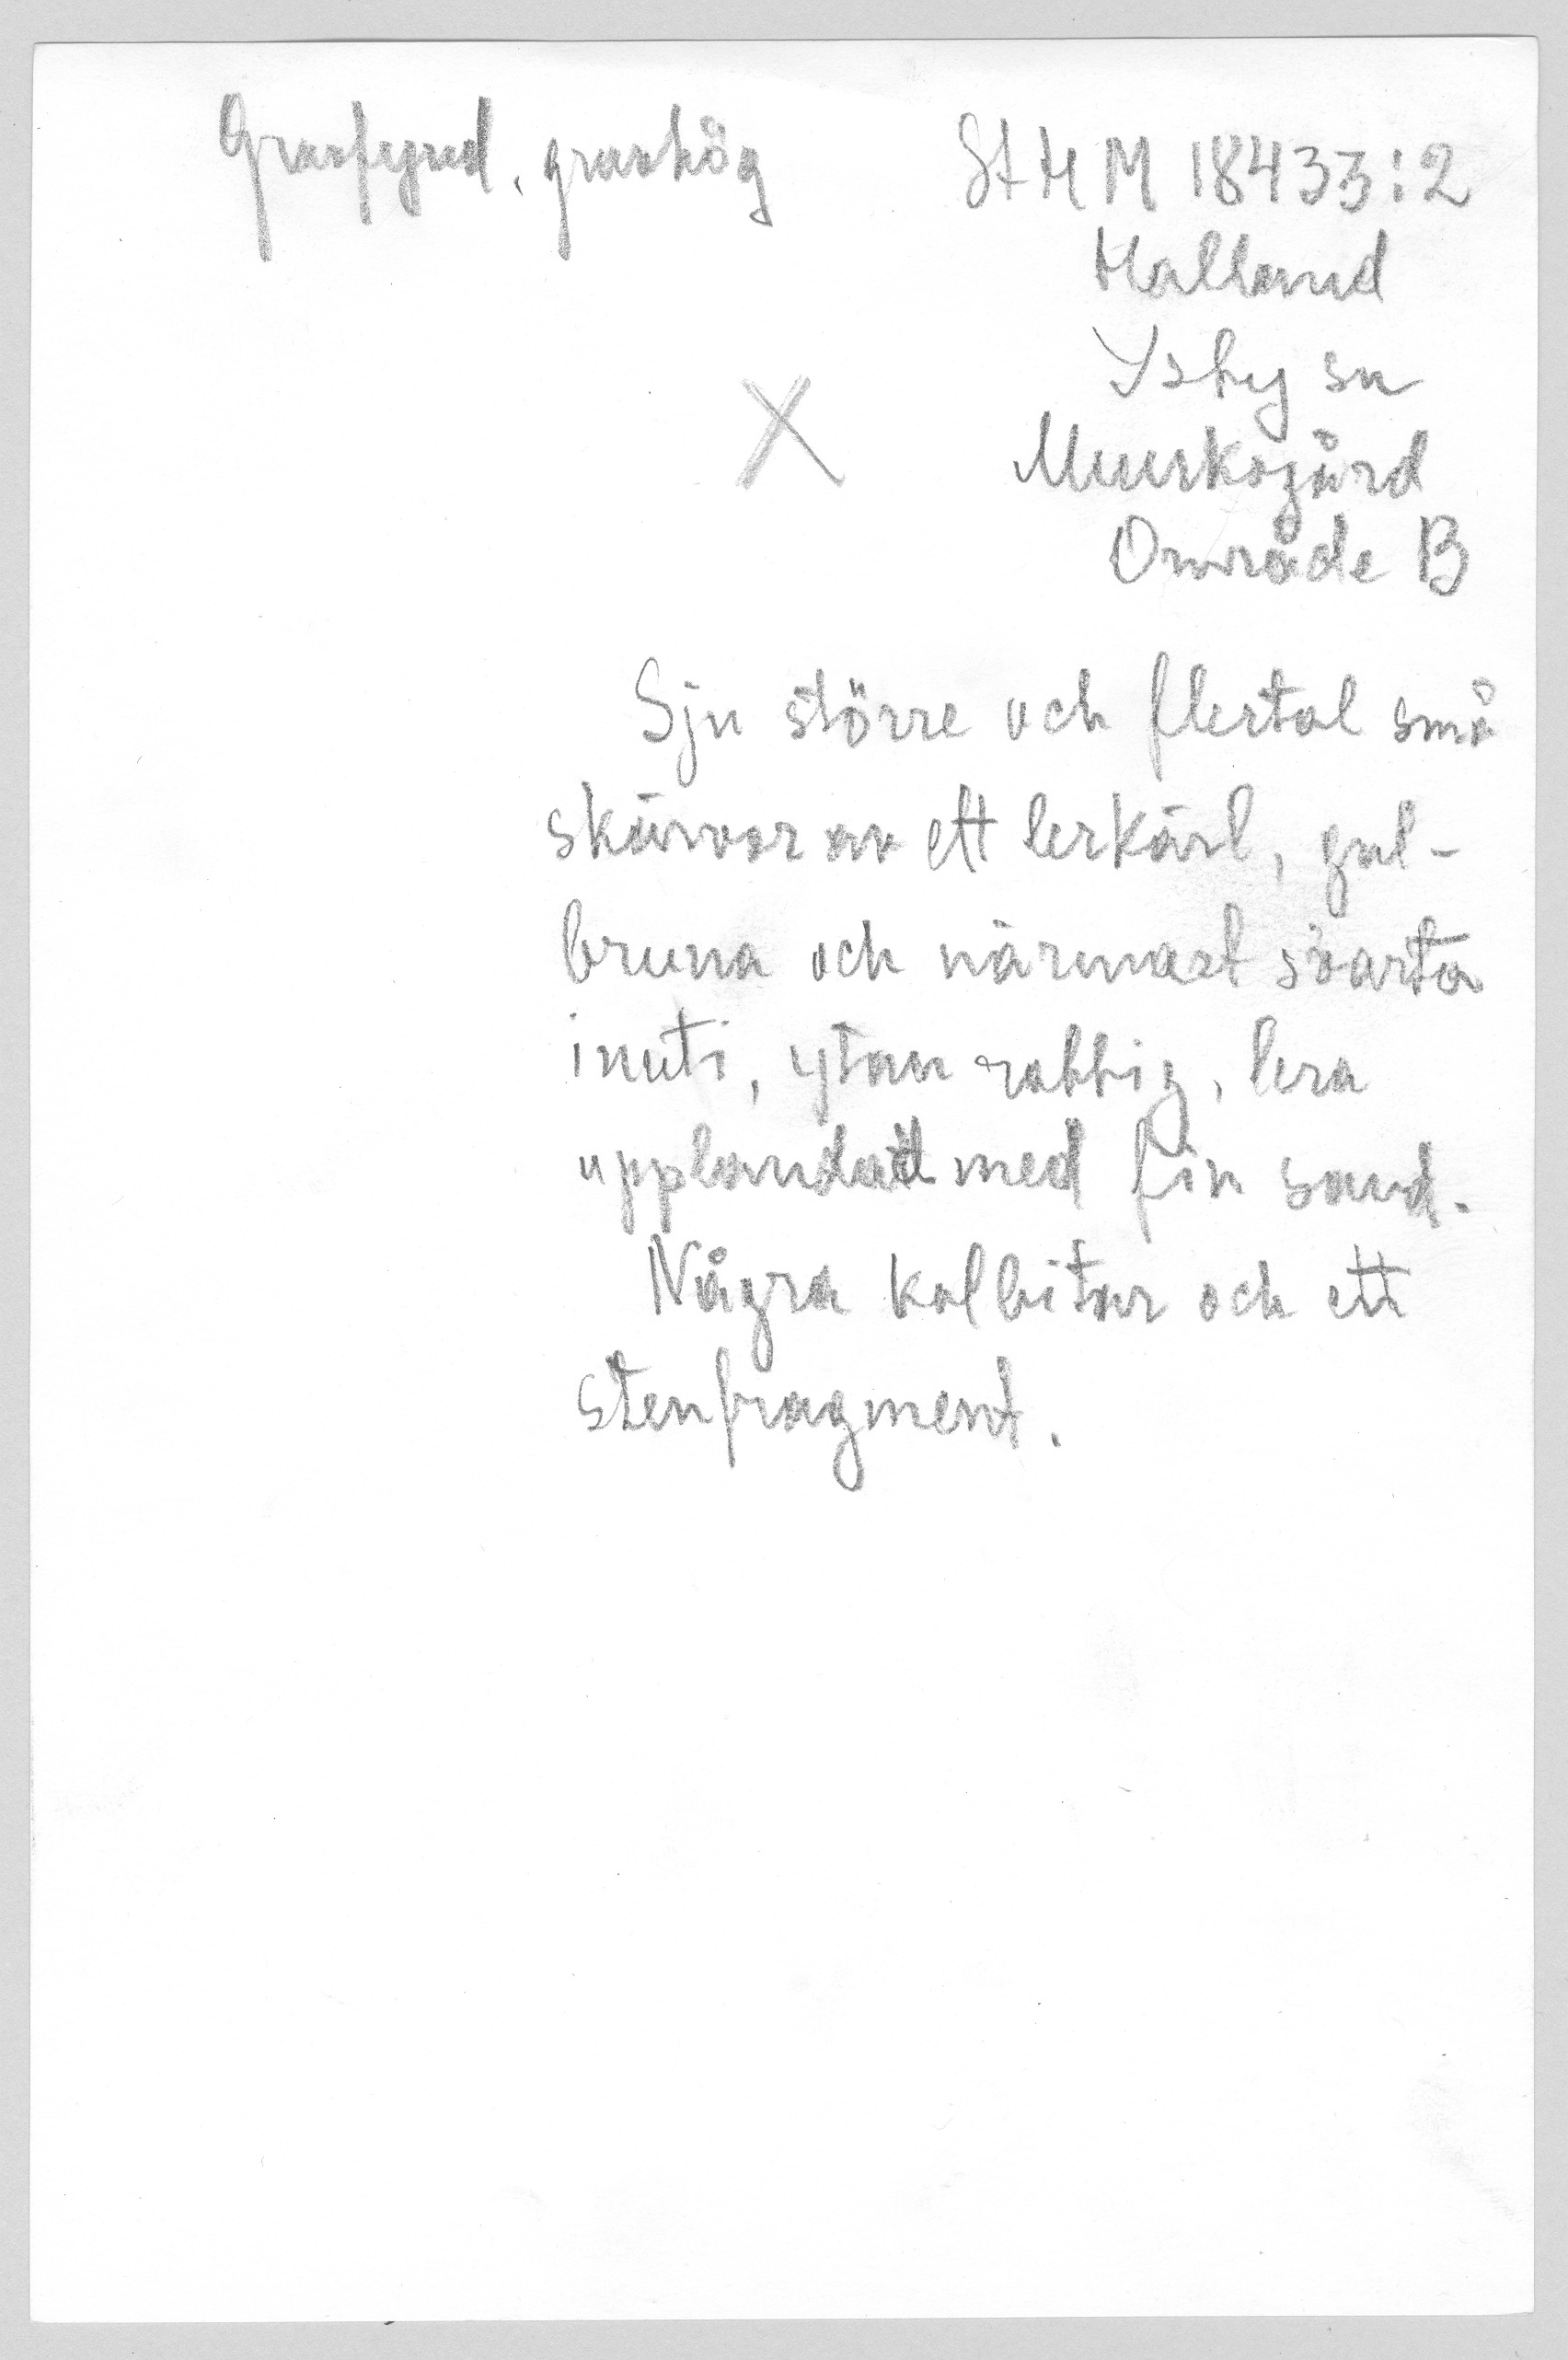 Gravfynd, gravhög
St H M 18433:2
Halland
Ysby sn
X
Munkagård
Område B
Sju större och flertal små
skärvor av ett lerkärl, gul-
bruna och närmast svarta
inuti, ytan rabbig, lera
uppblandad med fin sand.
Några kolbitar och ett
stenfragment.